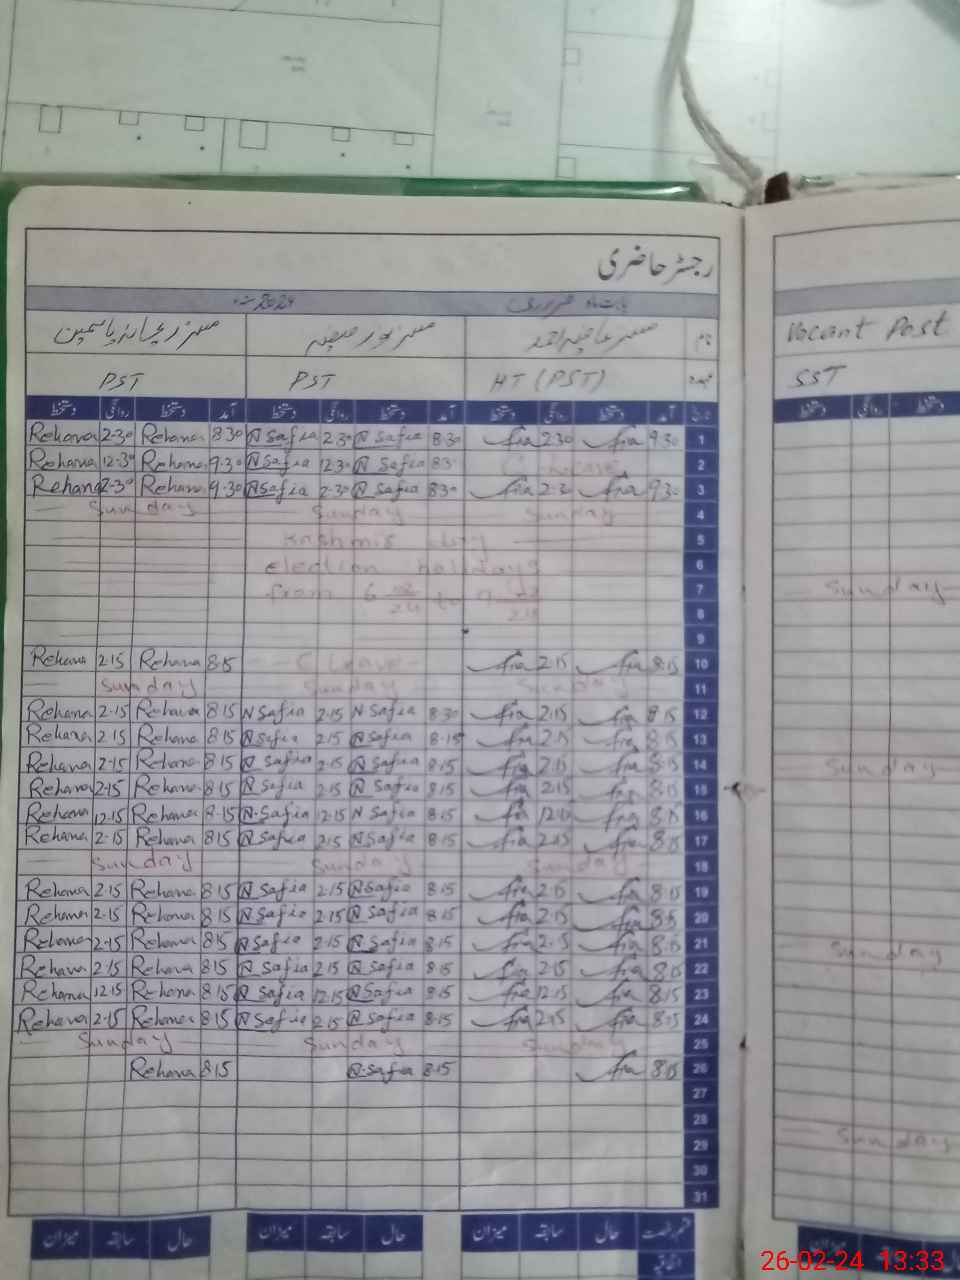 رجسٹر حاضری
بابت ماہ فروری 2024ء
نام مسز نور صفیہ مسز ریحانہ یاسمین
Vacant Post
عہدہ HT (PST) PST PST
SST
تاریخ آمد دستخط روانگی دستخط آمد دستخط روانگی دستخط آمد دستخط روانگی دستخط
دستخط روانگی دستخط
Rehana 2-30 Rehana 8 30 N Safia 2 30 N Safia 8 30 2 30 9 30 1
Rehana 12-30 Rehana 9.30 N Safia 12 30 N Safia 8 3 C Leave 2
Rehana 2-30 Rehana 9.30 N Safia 2-30 N Safia 8 30 2-30 9 30 3
Sunday Sunday Sunday 4
Kashmir day 5
election holidays 6
from 6 02/24 to 9 02/24 7
Sunday
8
9
Rehana 2.15 Rehana 8.15 C Leave 2.15 8.15 10
Sunday Sunday Sunday 11
Rehana 2-15 Rehana 8 15 N Safia 2-15 N Safia 8-30 2.15 8 15 12
Rehana 2 15 Rehana 8 15 N Safia 2 15 N Safia 8-15 2.15 8.15 13
Rehana 2-15 Rehana 8 15 N Safia 2-15 N Safia 8.15 2.15 8.15 14
Sunday
Rehana 2-15 Rehana 8 15 N Safia 2.15 N Safia 8.15 2.15 8.15 15
Rehana 12-15 Rehana 8-15 N-Safia 12-15 N Safia 8.15 12.15 8.15 16
Rehana 2-15 Rehana 8 15 N Safia 2.15 N Safia 8.15 2.15 8.15 17
Sunday Sunday Sunday 18
Rehana 2.15 Rehana 8.15 N Safia 2.15 N Safia 8.15 2.15 8.15 19
Rehana 2-15 Rehana 8.15 N Safia 2.15 N Safia 8.15 2.15 8.15 20
Rehana 2-15 Rehana 8 15 N Safia 2.15 N Safia 8.15 2.15 8.15 21
Sunday
Rehana 2.15 Rehana 8 15 N Safia 2.15 N Safia 8.15 2.15 8.15 22
Rehana 12.15 Rehana 8 15 N Safia 12.15 N Safia 8.15 12.15 8.15 23
Rehana 2-15 Rehana 8 15 N Safia 2.15 N Safia 8.15 2.15 8.15 24
Sunday Sunday Sunday 25
Rehana 8 15 N-Safia 8.15 8.15 26
27
28
Sunday
29
30
31
قسم رخصت حال سابقہ میزان حال سابقہ میزان حال سابقہ میزان
اتفاقیہ
26-02-24 13:33